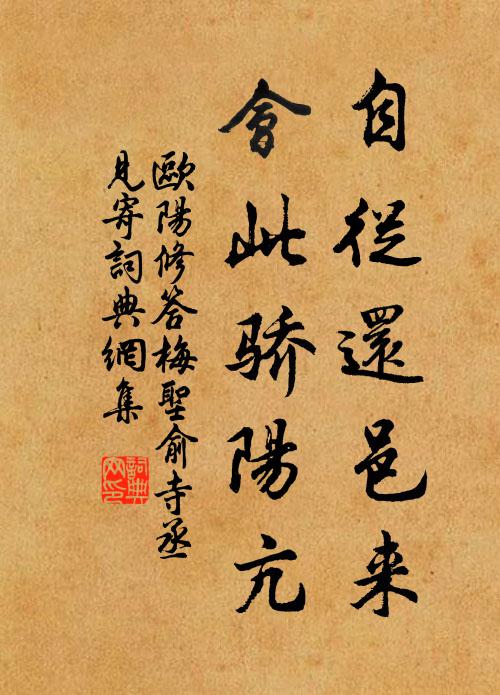 自從還邑来
會此骄陽亢
歐陽修答梅聖俞寺丞
見寄詞典網集
詞典網印